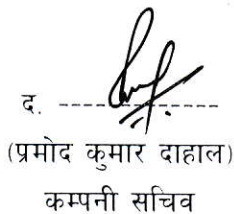 द. ----------------
(प्रमोद कुमार दाहाल)
कम्पनी सचिव